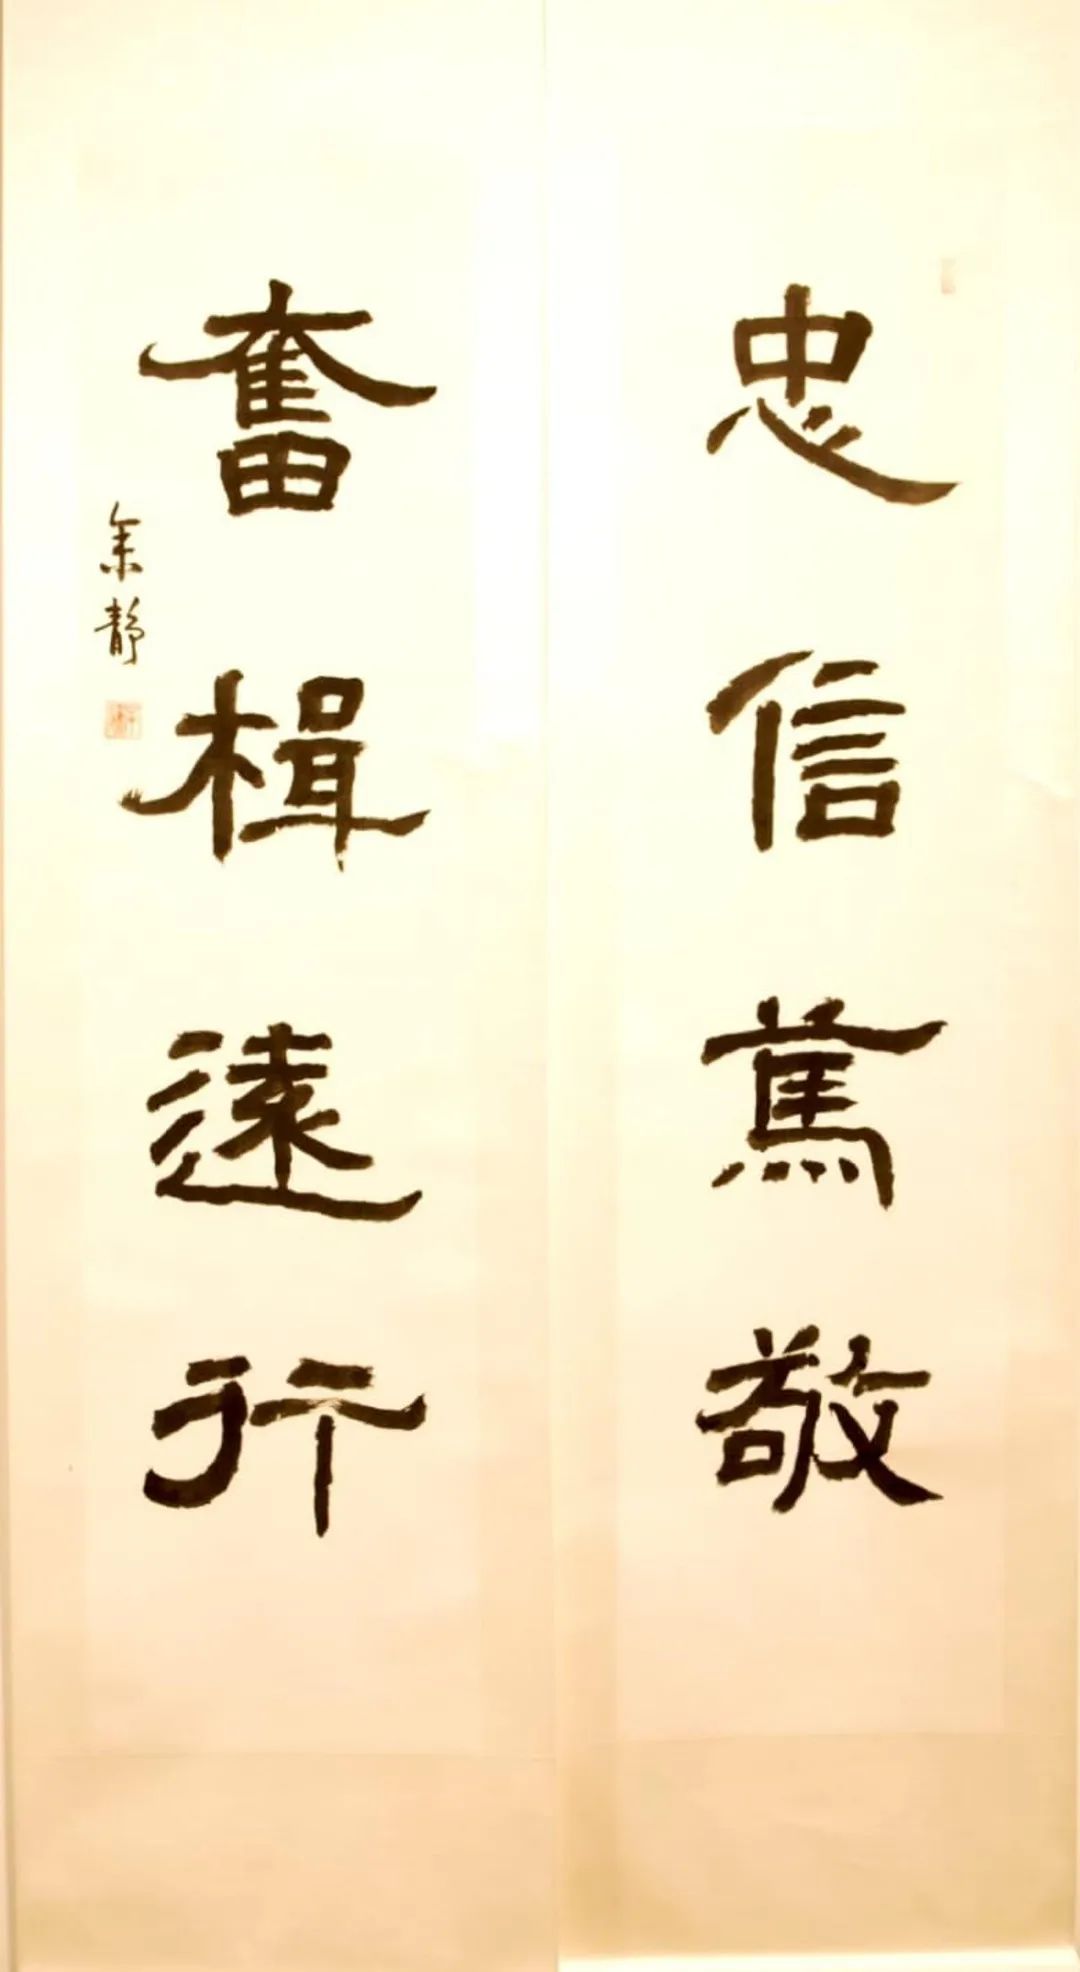 忠信篤敬
奮楫遠行
余靜